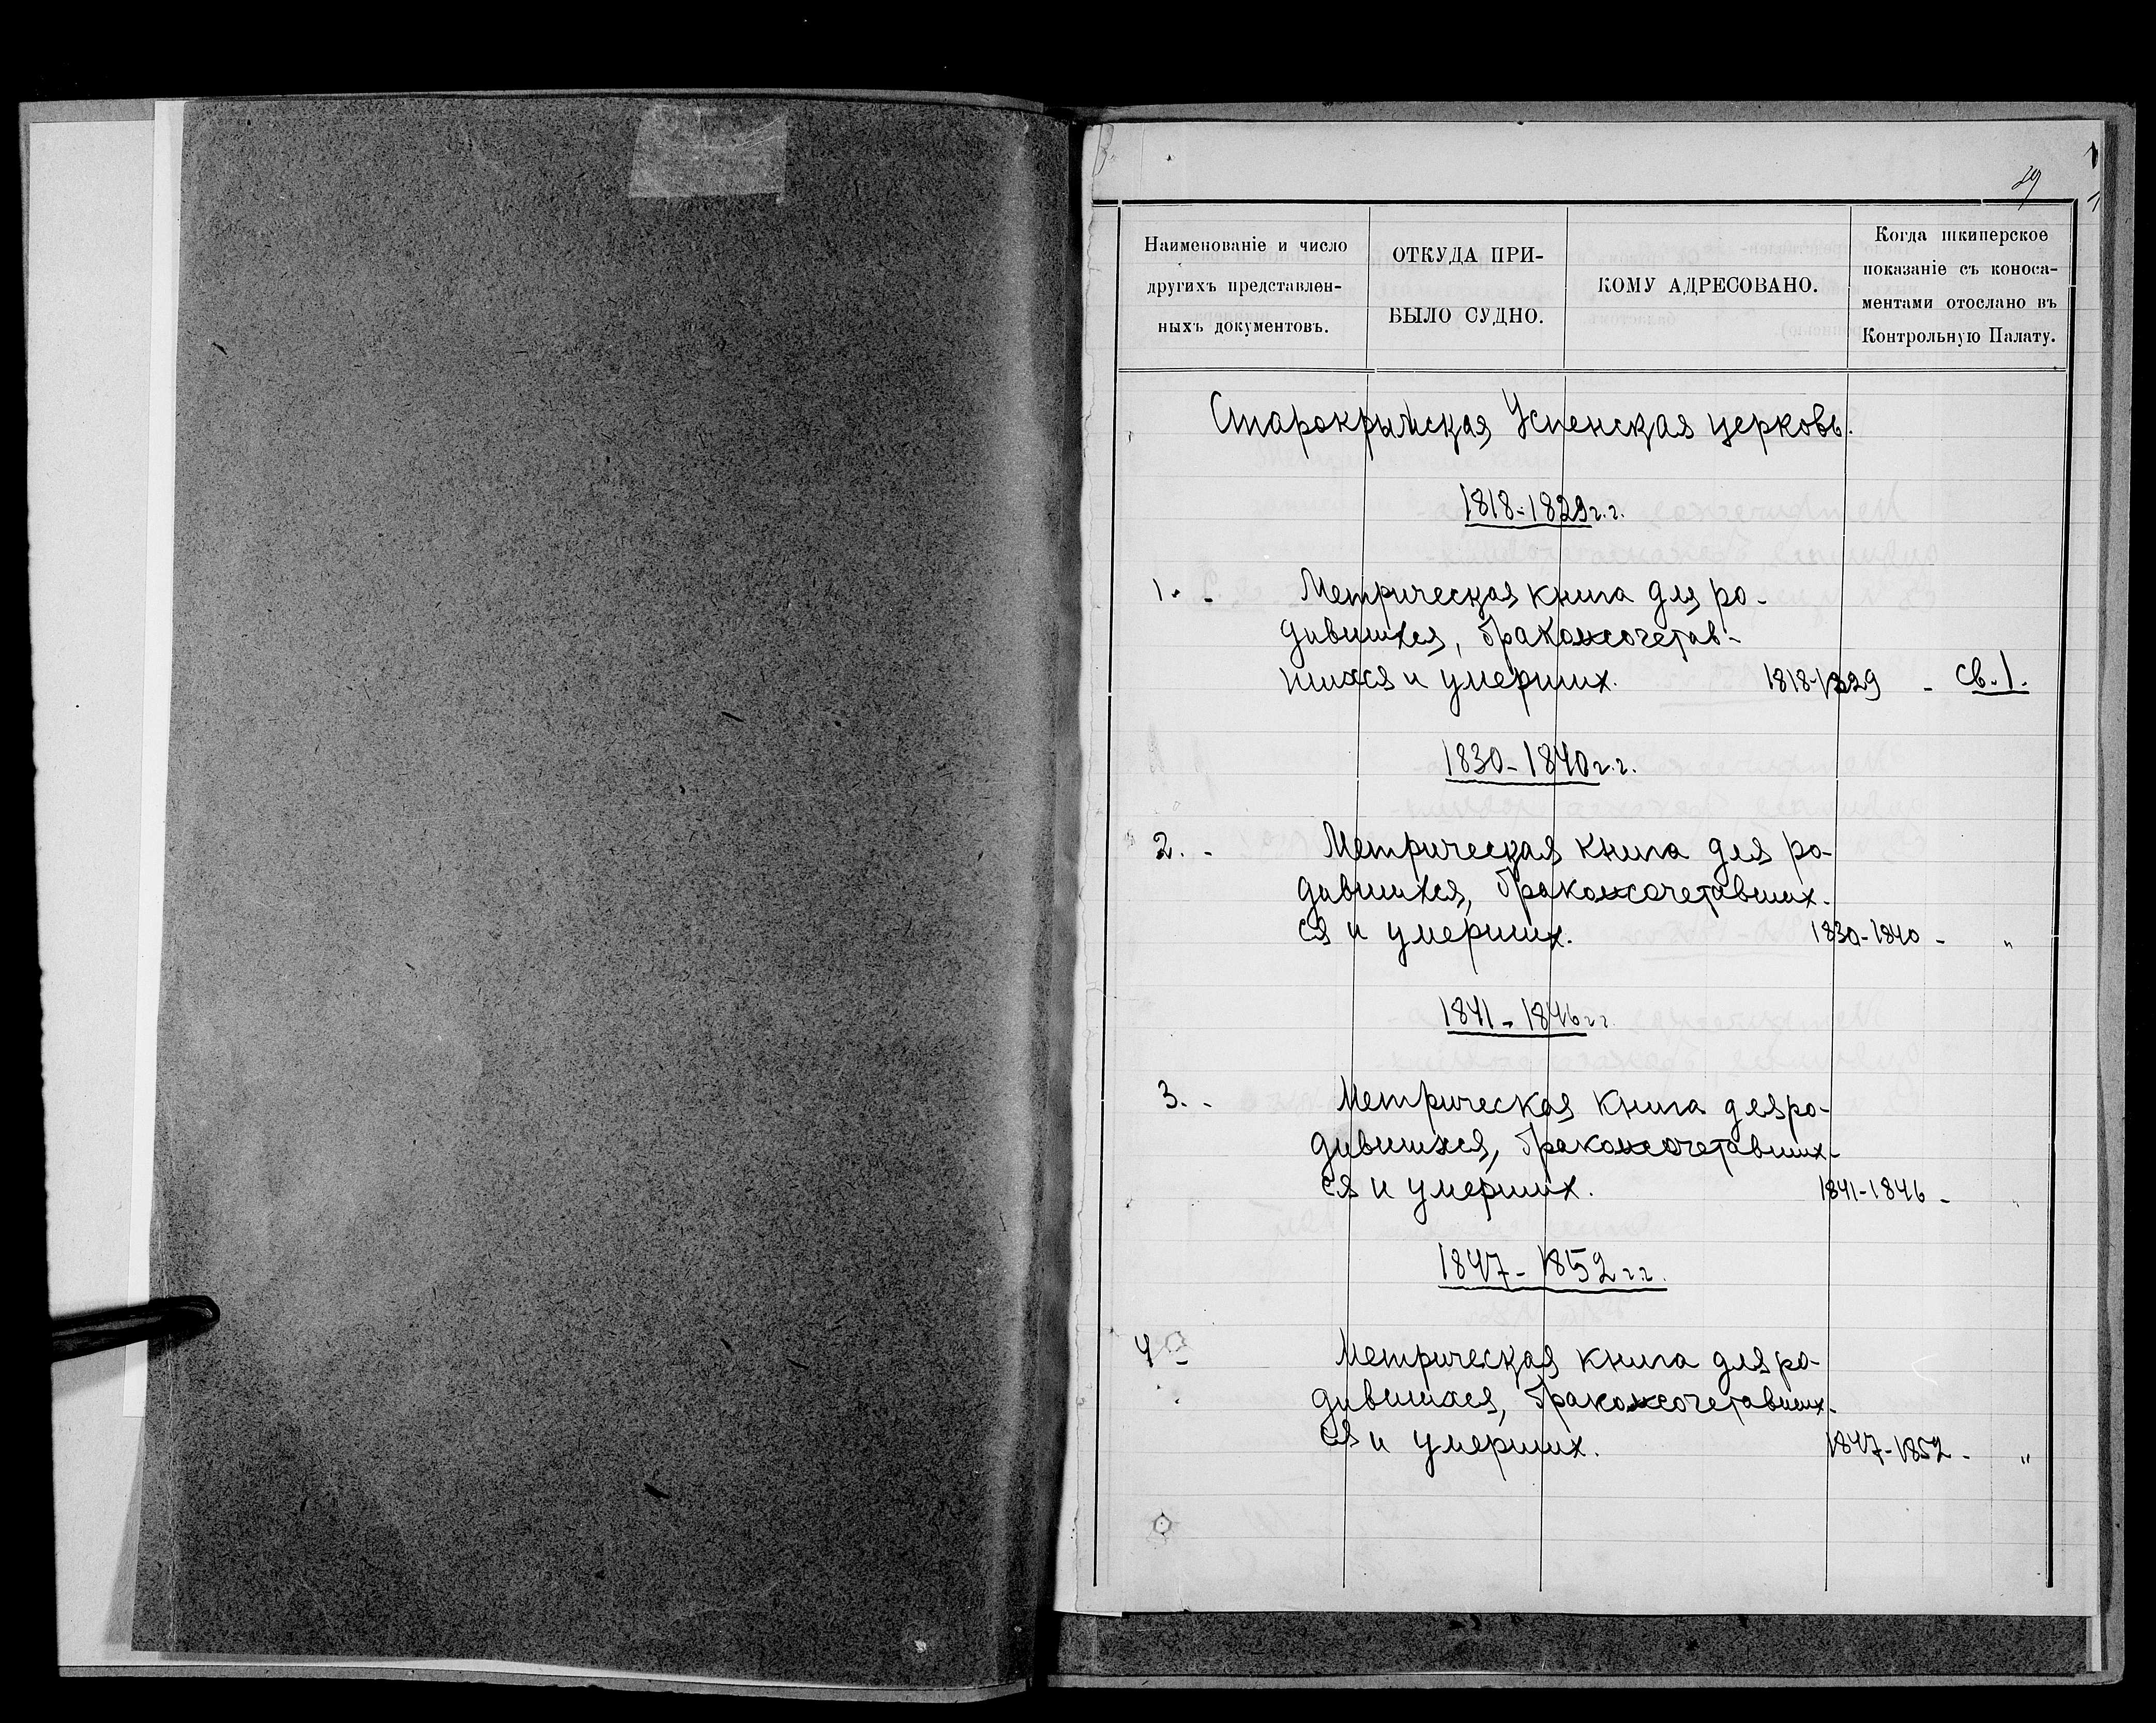 29
Наименованіе и число
другихъ представлен-
ныхъ документовъ.
ОТКУДА ПРИ-
БЫЛО СУДНО.
КОМУ АДРЕСОВАНО.
Когда шкиперское
показаніе съ коноса-
ментами отослано въ
Контрольную Палату.
Старокрымская Успенская церковь.
1818-1829 г.г.
1. - Метрическая книга для ро-
дившихся, бракосочетав-
шихся и умерших. 1818-1829 - св. 1.
1830-1840 г.г.
2. - Метрическая книга для ро-
дившихся, бракосочетавших-
ся и умерших. 1830-1840 - "
1841-1846 г г
3. - Метрическая книга для ро-
дившихся, бракосочетавших-
ся и умерших. 1841-1846 - "
1847-1852 г.г.
4 - Метрическая книга для ро-
дившихся, бракосочетавших-
ся и умерших. 1847-1852 - "